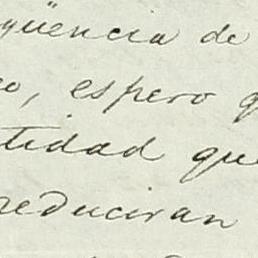 qüencia de
o, espero q
tidad que
reduciran